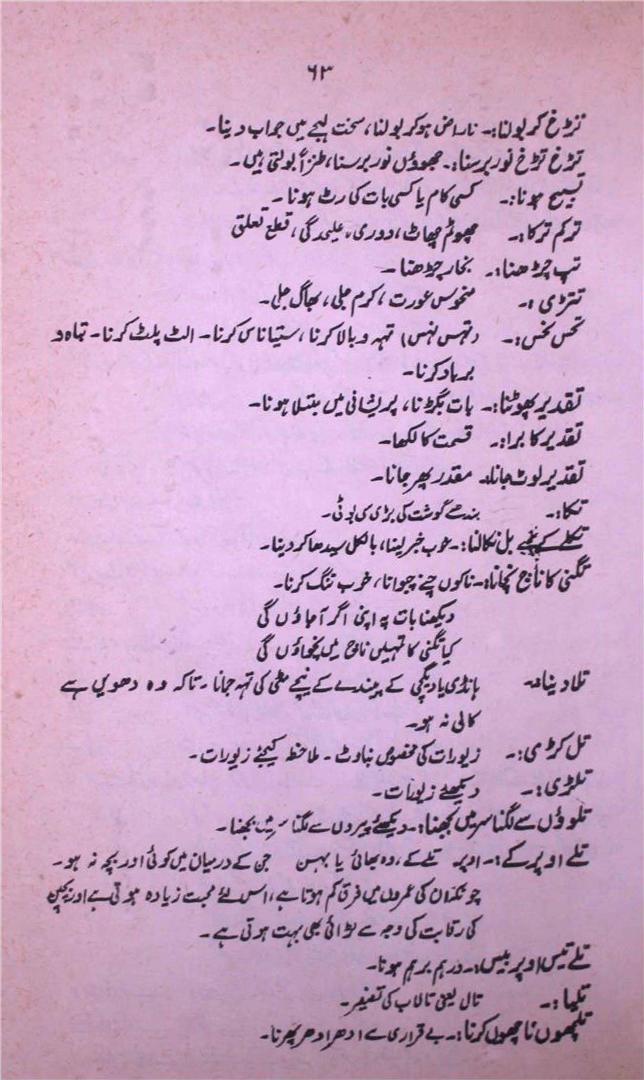 ۶۳
تڑغ کر بولنا:۔ ناراض ہو کر بولنا، سخت لہجے میں جواب دینا۔
تڑغ تڑغ نور برسنا:۔ جھوؤں نور برسنا، طنزاً بولتی ہیں۔
تسبیح ہونا:۔ کسی کام یا کسی بات کی رٹ ہونا۔
ترکم ترکا:۔ چھوٹم چھاٹ، دوری، علیحدگی، قطع تعلق
تپ چڑھنا:۔ بخار چڑھنا۔
تتڑی:۔ منحوس عورت، کرم جلی، بھاگ جلی۔
تحس نحس:۔ (تہس نہس) تہہ و بالا کرنا، ستیاناس کرنا۔ الٹ پلٹ کرنا۔ تباہ و
برباد کرنا۔
تقدیر پھوٹنا:۔ بات بگڑنا، پریشانی میں مبتلا ہونا۔
تقدیر کا برا:۔ قسمت کا لکھا۔
تقدیر لوٹ جانا:۔ مقدر پھر جانا۔
تکا:۔ بندھے گوشت کی بڑی سی بوٹی۔
تکلے کے سے بل نکالنا:۔ خوب خبر لینا، بالکل سیدھا کر دینا۔
تگنی کا ناچ نچانا:۔ ناکوں چنے چبوانا، خوب تنگ کرنا۔
دیکھنا بات پہ اپنی اگر آ جاؤں گی
کیا تگنی کا تمہیں ناچ میں نچواؤں گی
تلا دینا:۔ ہانڈی یا دیگچی کے پیندے کے نیچے مٹی کی تہہ جمانا۔ تاکہ وہ دھویں سے
کالی نہ ہو۔
تل کڑی:۔ زیورات کی مخصوص بناوٹ۔ ملاحظہ کیجئے زیورات۔
تلڑی:۔ دیکھئے زیورات۔
تلوؤں سے لگنا سر میں بجھنا:۔ دیکھئے پیروں سے لگنا سر میں بجھنا۔
تلے اوپر کے:۔ اوپر تلے کے، وہ بھائی یا بہن جن کے درمیان میں کوئی اور بچہ نہ ہو۔
چونکہ ان کی عمروں میں فرق کم ہوتا ہے، اس لئے محبت زیادہ ہوتی ہے اور بچپن
کی رقابت کی وجہ سے لڑائی بھی بہت ہوتی ہے۔
تلے تیس اوپر بیس:۔ درہم برہم ہونا۔
تلیا:۔ تال یعنی تالاب کی تصغیر۔
تلچھوں نا چھوں کرنا:۔ بے قراری سے ادھر ادھر پھرنا۔